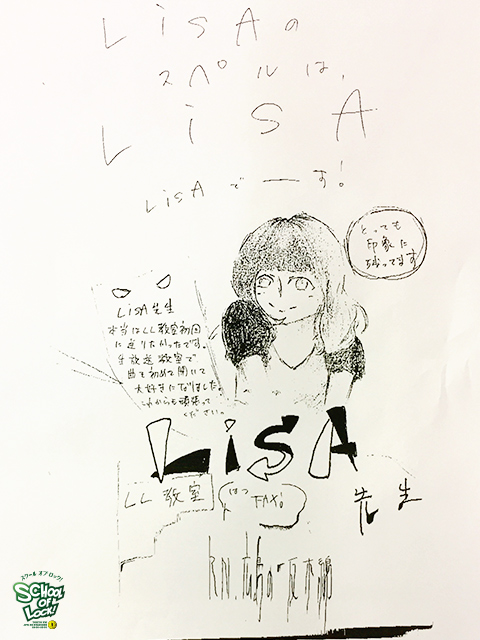 LiSAの
スペルは、
LiSA
LiSAでーす！
とっても
印象に
残ってます
LiSA先生
本当はLL教室初回
に送りたかったです。
放送教室で
曲を初めて聞いて
大好きになりました。
これからも頑張って
ください。
LiSA
先生
LL教室
はつ
FAX!
RN.広島の
スクール オブ ロック!
SCHOOL
OF
LOCK!